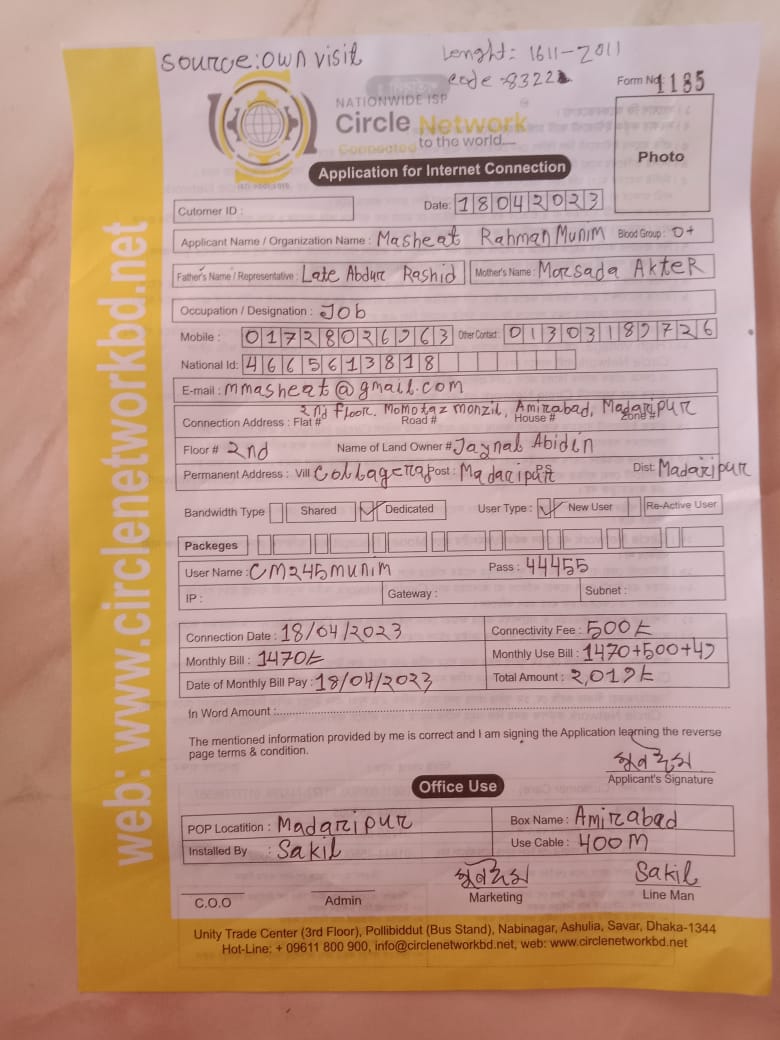 source: own visit
Lenght: 1611-2011
code :8322
Form No. 1185
NATIONWIDE ISP
Circle Network
Connected to the world....
ISO 9001:2015
Photo
Application for Internet Connection
Cutomer ID :
Date: 18042023
Applicant Name / Organization Name : Masheat Rahman Munim Blood Group : O+
Father's Name / Representative : Late Abdur Rashid Mother's Name : Morsada Akter
Occupation / Designation : Job
Mobile : 01728026963 Other Contact : 01303189726
National Id: 4665613818
E-mail : mmasheat@gmail.com
2nd Floor. Momotaz Monzil, Amirabad, Madaripur
Connection Address : Flat # Road # House # Zone #
Floor # 2nd Name of Land Owner # Jaynal Abidin
Permanent Address : Vill Post : Madaripur Dist: Madaripur
Bandwidth Type Shared Dedicated User Type : New User Re-Active User
Packeges
User Name : CM245munim Pass : 44455
IP : Gateway : Subnet :
Connection Date : 18/04/2023 Connectivity Fee : 500৳
Monthly Bill : 1470৳ Monthly Use Bill : 1470+500+49
Date of Monthly Bill Pay : 18/04/2023 Total Amount : 2,019৳
In Word Amount :
The mentioned information provided by me is correct and I am signing the Application learning the reverse
page terms & condition.
Applicant's Signature
Office Use
POP Locatition : Madaripur Box Name : Amirabad
Installed By : Sakil Use Cable : 400M
Sakil
C.O.O Admin Marketing Line Man
Unity Trade Center (3rd Floor), Pollibiddut (Bus Stand), Nabinagar, Ashulia, Savar, Dhaka-1344
Hot-Line: + 09611 800 900, info@circlenetworkbd.net, web: www.circlenetworkbd.net
web: www.circlenetworkbd.net